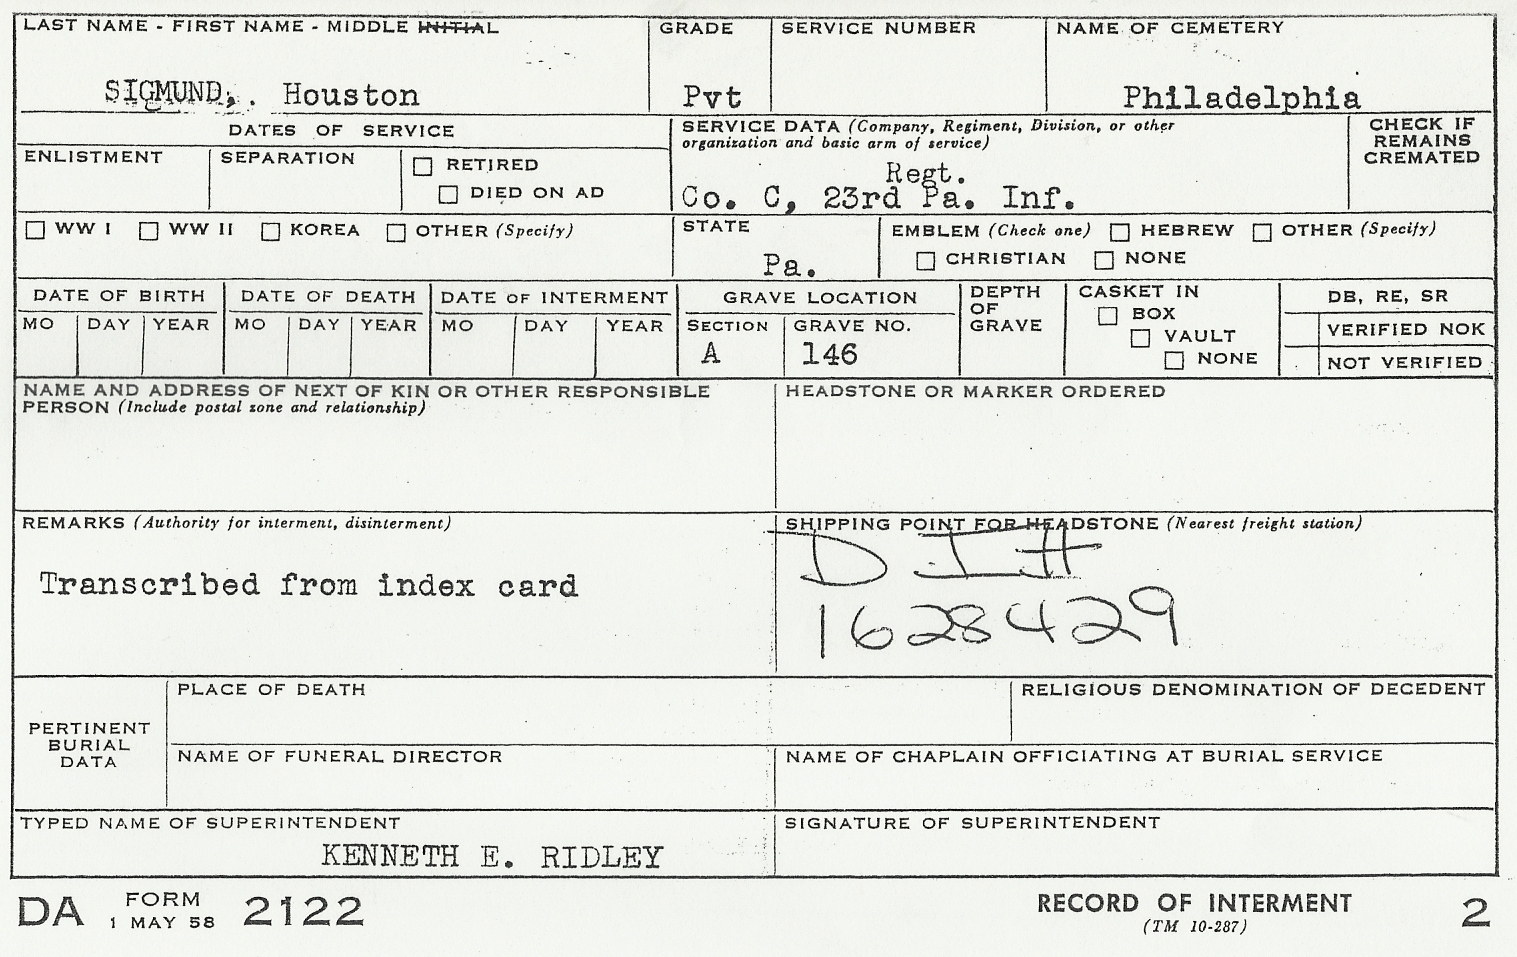 LAST NAME - FIRST NAME - MIDDLE INITIAL
GRADE
SERVICE NUMBER
NAME OF CEMETERY
SIGMUND, Houston
Pvt
Philadelphia
DATES OF SERVICE
SERVICE DATA (Company, Regiment, Division, or other
organization and basic arm of service)
CHECK IF
REMAINS
CREMATED
ENLISTMENT
SEPARATION
RETIRED
DIED ON AD
Regt.
Co. C, 23rd Pa. Inf.
WW I
WW II
KOREA
OTHER (Specify)
STATE
Pa.
EMBLEM (Check one)
HEBREW
OTHER (Specify)
CHRISTIAN
NONE
DATE OF BIRTH
DATE OF DEATH
DATE OF INTERMENT
GRAVE LOCATION
DEPTH
OF
GRAVE
CASKET IN
BOX
VAULT
NONE
DB, RE, SR
VERIFIED NOK
NOT VERIFIED
MO DAY YEAR
MO DAY YEAR
MO DAY YEAR
SECTION
GRAVE NO.
A
146
NAME AND ADDRESS OF NEXT OF KIN OR OTHER RESPONSIBLE
PERSON (Include postal zone and relationship)
HEADSTONE OR MARKER ORDERED
REMARKS (Authority for interment, disinterment)
Transcribed from index card
SHIPPING POINT FOR HEADSTONE (Nearest freight station)
D I H
1628429
PERTINENT
BURIAL
DATA
PLACE OF DEATH
RELIGIOUS DENOMINATION OF DECEDENT
NAME OF FUNERAL DIRECTOR
NAME OF CHAPLAIN OFFICIATING AT BURIAL SERVICE
TYPED NAME OF SUPERINTENDENT
KENNETH E. RIDLEY
SIGNATURE OF SUPERINTENDENT
DA FORM 2122
1 MAY 58
RECORD OF INTERMENT
(TM 10-287)
2